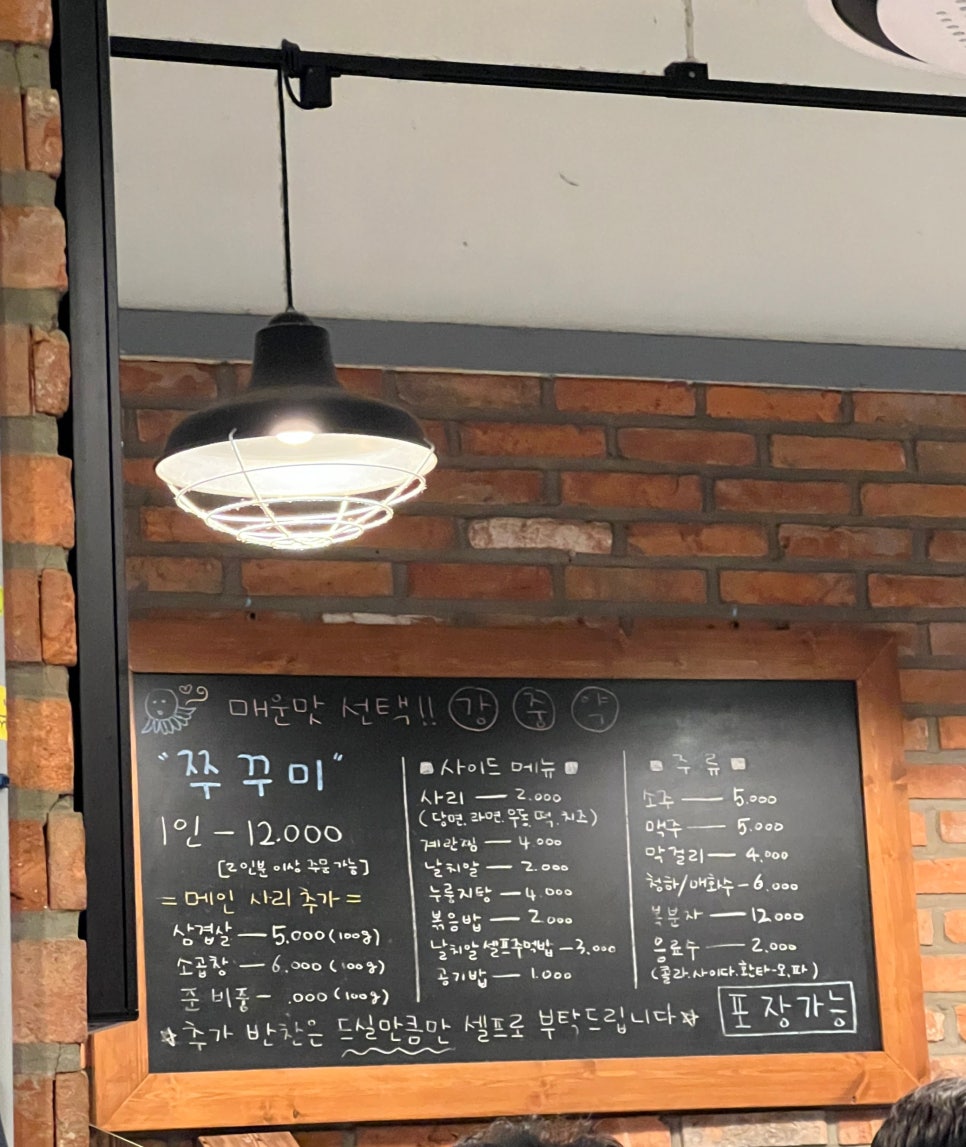 매운맛 선택!! 강 중 약
"쭈꾸미"
1인 - 12.000
[2인분 이상 주문가능]
= 메인 사리 추가 =
삼겹살 — 5.000 (100g)
소곱창 — 6.000 (100g)
준비중 - .000 (100g)
사이드 메뉴
사리 — 2.000
(당면. 라면. 우동. 떡. 치즈)
계란찜 — 4.000
날치알 — 2.000
누룽지탕 — 4.000
볶음밥 — 2.000
날치알 셀프주먹밥 — 3,000
공기밥 — 1.000
주류
소주 — 5.000
맥주 — 5.000
막걸리 — 4.000
청하/매화수 - 6.000
복분자 — 12.000
음료수 — 2.000
(콜라.사이다.환타-오,파)
☆추가 반찬은 드실만큼만 셀프로 부탁드립니다☆
포장가능